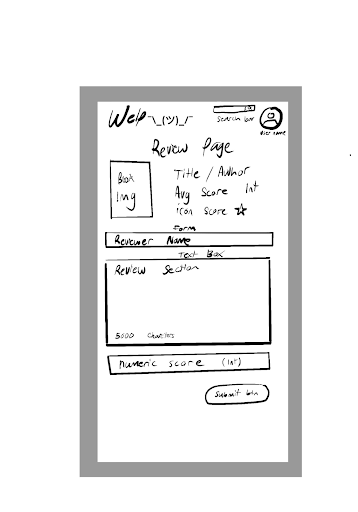 Welp ¯\_(ツ)_/¯
Search bar
User name
Review Page
Book
Img
Title / Author
Avg Score Int
icon score ☆
Form
Reviewer Name
Text Box
Review Section
5000 Characters
numeric score (Int)
Submit btn